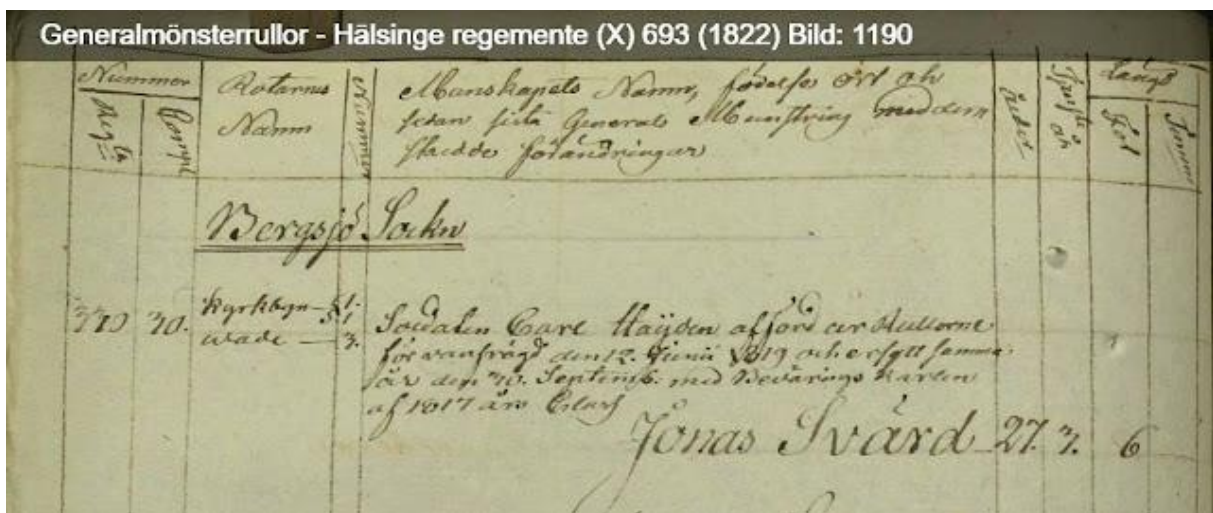 Generalmönsterrullor - Hälsinge regemente (X) 693 (1822) Bild: 1190
Nummer
Regts
Comp
Rotarnes
Namn
Nummer
Manskapets Namn, födelse Ort och
sedan sista General Munstring med dem
skedde förändringar
Ålder
Tjenste år
Längd
Fot
Tum
Bergsjö Sockn
Kyrkbyn 1.
1
wade 3.
370 70.
Soldaten Carl Haÿden afförd ur Rullorne
för vanfrägd den 12. Junii 1819 och ersatt samma
år den 30. Septemb. med Bevärings Karlen
af 1817 års Classs
Jonas Svärd 27. 3. 6